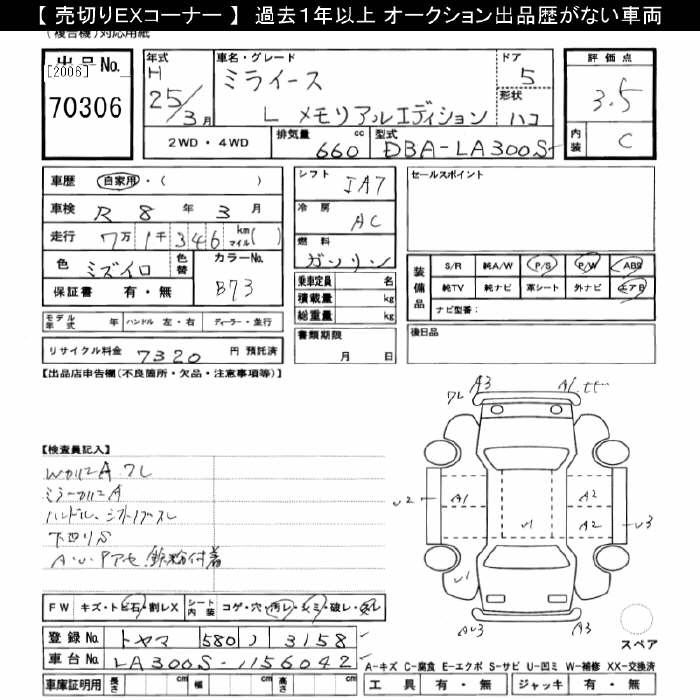 【 売切りEXコーナー 】 過去1年以上 オークション出品歴がない車両
(複合機)対応用紙
出品No.
[2006]
70306
年式
H
25/3月
車名・グレード
ミライース
L メモリアルエディション
ドア
5
形状
ハコ
評価点
3.5
内装
C
2WD・4WD
排気量 660 cc
型式 DBA-LA300S
車歴 自家用・( )
車検 R 8 年 3 月
走行 7万 1千 346 km マイル( )
色 ミズイロ
色替
カラーNo.
B73
保証書 有・無
シフト IA7
冷房 AC
燃料 ガソリン
乗車定員 名
積載量 kg
総重量 kg
セールスポイント
装備品
S/R 純A/W P/S P/W ABS
純TV 純ナビ 革シート 外ナビ エアB
ナビ型番:
モデル年式 年 ハンドル 左・右 ディーラー・並行
リサイクル料金 7320 円 預託済
書類期限
月 日
後日品
【出品店申告欄(不良箇所・欠品・注意事項等)】
【検査員記入】
A3 A1
ワレ
ミラーカバーA
下回りS
A・U・Pアセ 鉄粉付着
U2 A1 A2
U1 A2 U3
U1
AU3 A3
スペア
FW キズ・トビ石・割レX
シート内装 コゲ・穴・汚レ・シミ・破レ・スレ
登録No. トヤマ 580 ) 3158
車台No. LA300S-1156042
車庫証明用 長さ cm 幅 cm 高さ cm
A-キズ C-腐食 E-エクボ S-サビ U-凹ミ W-補修 XX-交換済
工具 有・無 ジャッキ 有・無